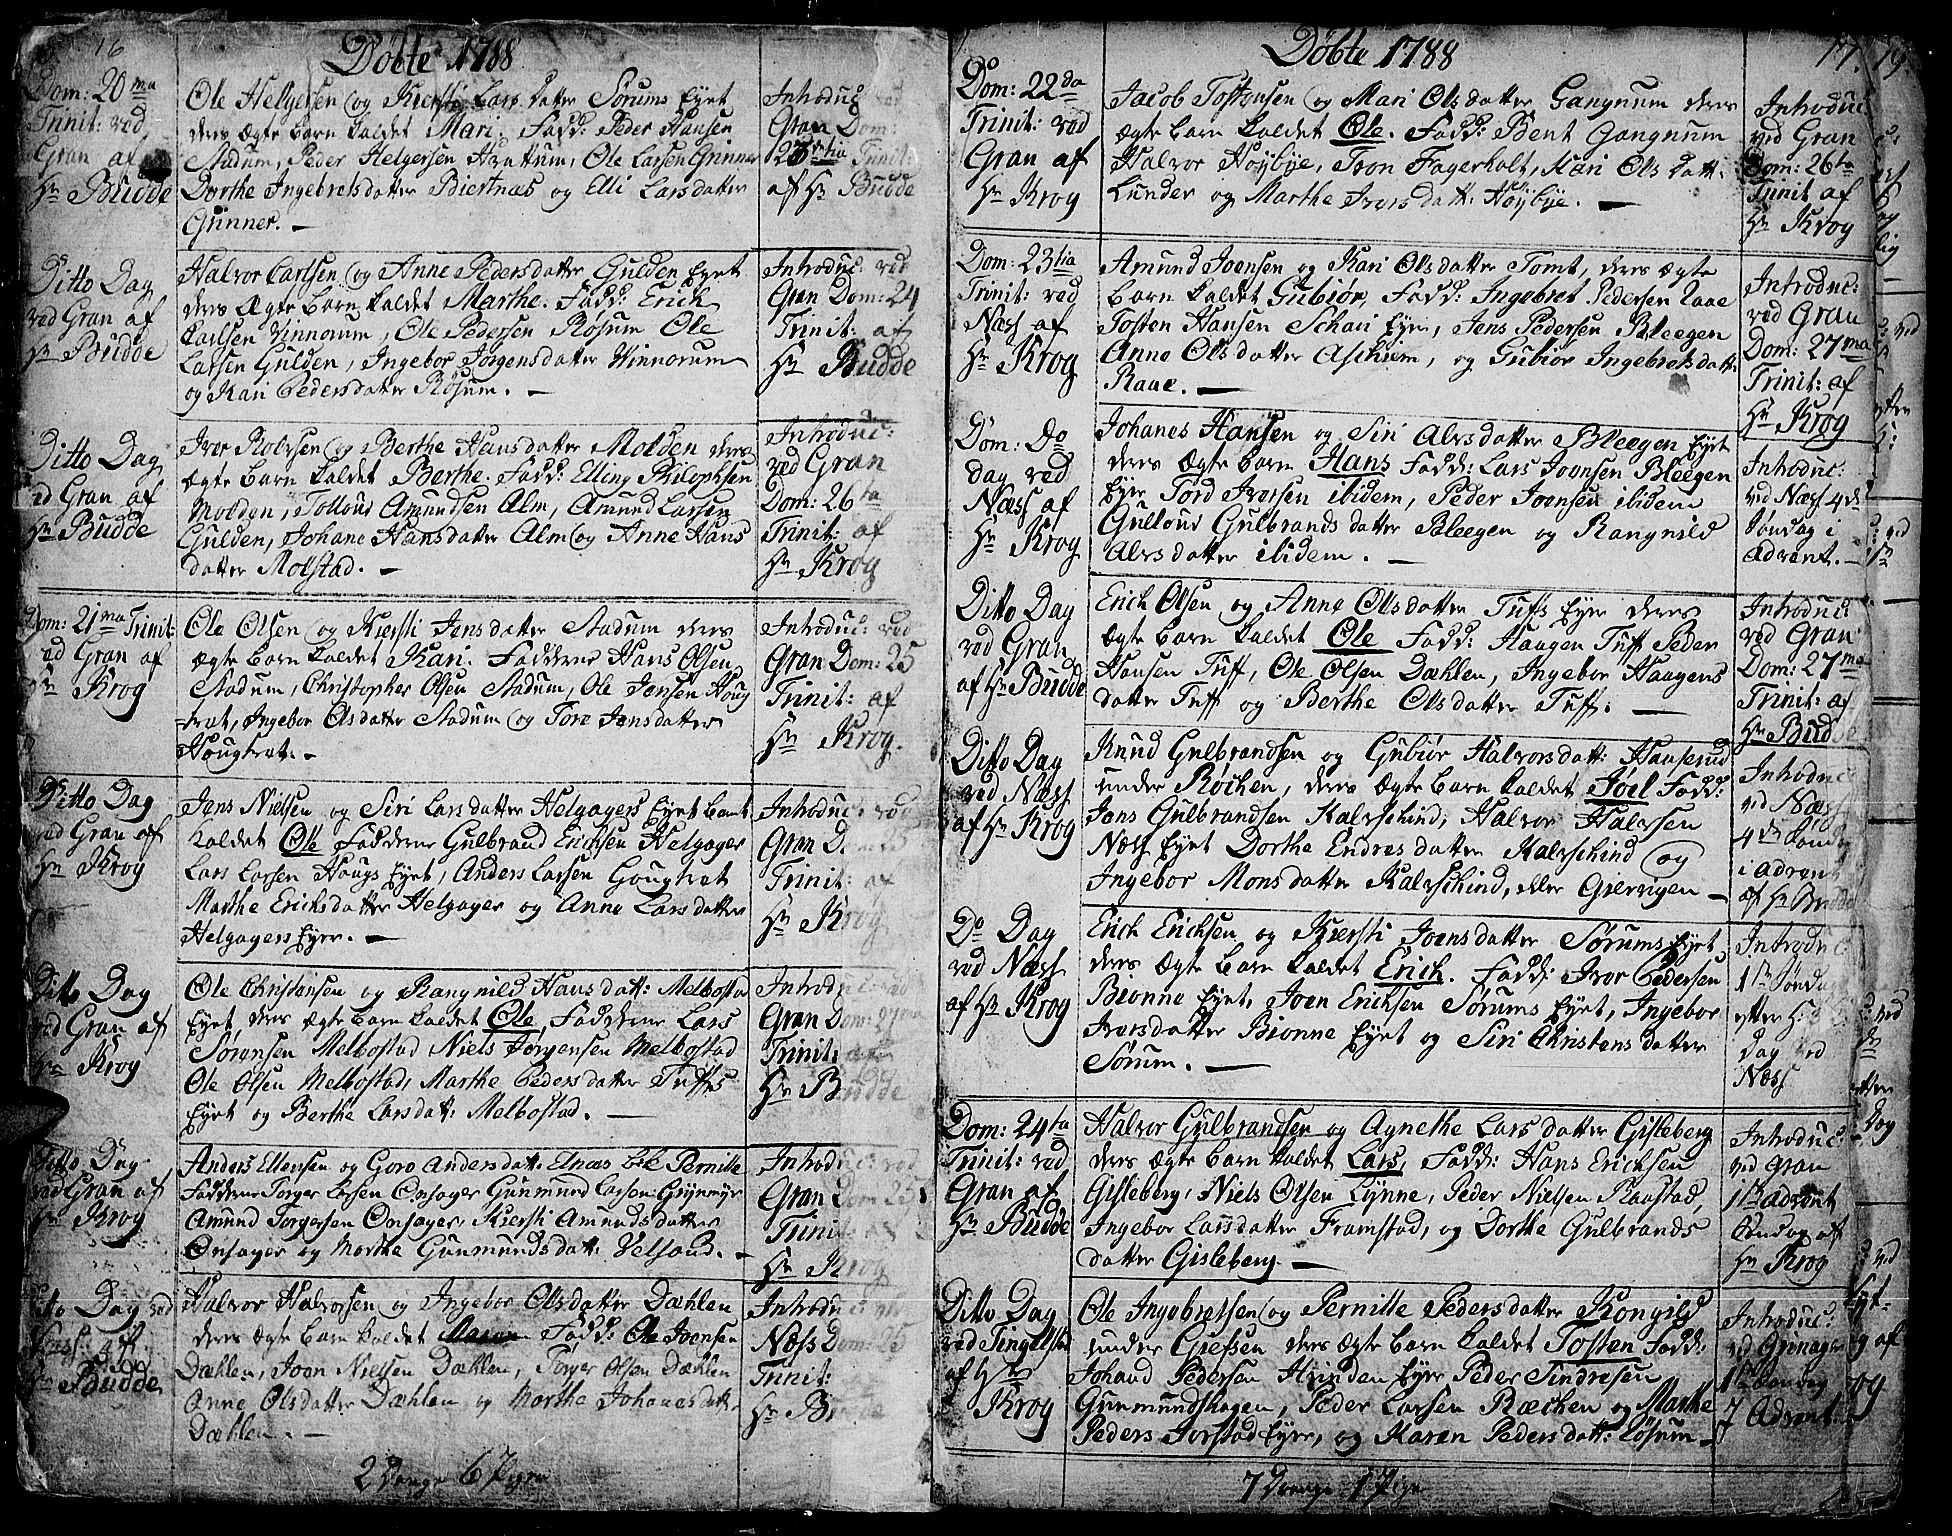 16
Döbte 1788
Dom: 20ma
Trinit: ved
Gran af
Hr Budde
Ole Helgersen og Kiersti Lars datter Sørums Eyet
deres ægte barn kaldet Mari. Fadd: Peder Hansen
Stadum, Peder Helgersen Hvattum, Ole Larsen Grinner
Dorthe Ingebretsdatter Biertnæs og Elli Larsdatter
Grinner. —
Introduc: ved
Gran Dom:
23tia Trinit:
af Hr Budde
Ditto Dag
ved Gran af
Hr Budde
Halvor Carlsen og Anne Pedersdatter Gulden Eyet
deres ægte barn kaldet Marthe. Fadd: Erich
Carlsen Vinnorum, Ole Pedersen Røsum Ole
Larsen Gulden, Ingebor Jørgensdatter Winnorum
og Kari Pedersdatter Røsum. —
Introduc: ved
Gran Dom: 24
Trinit: af
Hr Budde
Ditto Dag
ved Gran af
Hr Budde
Iver Rolvsen og Berthe Hansdatter Molden deres
ægte barn kaldet Berthe. Fadd: Elling Philophsen
Molden, Tollouf Amundsen Alm, Amund Larsen
Gulden, Johane Hansdatter Alm og Anne Hans
datter Molstad. —
Introduc:
ved Gran
Dom: 26ta
Trinit: af
Hr Krog
Dom: 21ma Trinit:
ved Gran af
Hr Krog
Ole Olsen og Kiersti Jensdatter Stadum deres
ægte barn kaldet Kari. Fadderne Hans Olsen
Stadum, Christopher Olsen Stadum, Ole Jensen Houg
-trat, Ingebor Olsdatter Stadum og Tore Jensdatter
Hougtrat. —
Introduc: ved
Gran Dom: 25
Trinit: af
Hr Krog.
Ditto Dag
ved Gran af
Hr Krog
Jens Nielsen og Siri Larsdatter Helgagers Eyet barn
kaldet Ole Fadderne Gulbrand Erichsen Helgager
Lars Larsen Hougs Eyet, Anders Larsen Hougtrat
Marthe Erichsdatter Helgager og Anne Larsdatter
Helgagers Eyer. —
Introduc: ved
Gran D
Trinit: af
Hr Krog
Ditto Dag
ved Gran af
Hr Krog
Ole Christensen og Rangnild Hansdatt: Melbostad
Eyet, deres ægte barn kaldet Ole, Fadderne Lars
Sørensen Melbostad Niels Jørgensen Melbostad
Ole Olsen Melbostad, Marthe Pedersdatter Tuffs
Eyet og Berthe Larsdatt: Melbostad. —
Introduc: ved
Gran Dom: 27ma
Trinit:
Hr Budde
Ditto Dag
ved Gran af
Hr Krog
Anders Ellensen og Goro Andersdatt: Elnæs bb: Pernille
Fadderne Torger Ersen Onsager Gunmund Larsen Grynmyr
Amund Torgersen Onsager Kiersti Amundsdatter
Onsager og Marthe Gunmundsdatt: Velsand. —
Introduc: ved
Gran Dom: 25
Trinit
Hr Krog
Ditto Dag ved
Næss: af
Hr Budde
Halvor Halvorsen og Ingebor Olsdatter Dæhlen
deres ægte barn kaldet Maren Fadd: Ole Joensen
Dæhlen, Joen Nielsen Dæhlen, Torger Olsen Dæhlen
Anne Olsdatter Dæhlen og Marthe Johanesdatt:
Dæhlen. —
Introduc: ved
Næss Dom:
Trinit:
Hr B
2 Drenge 6 Piger
Döbte 1788
17. 19.
Dom: 22da
Trinit: ved
Gran af
Hr Krog
Jacob Tostensen og Mari Olsdatter Gangnum deres
ægte barn kaldet Ole. Fadd: Bent Gangnum
Halvor Høybye, Joen Fagerholt, Kari Ols datt:
Lunder og Marthe Iversdatt: Høybye. —
Introduc:
ved Gran
Dom: 26ta
Trinit af
Hr Krog
Dom: 23tia
Trinit: ved
Næss af
Hr Krog
Amund Joensen og Kari Olsdatter Tomt, deres ægte
barn kaldet Gubiør, Fadd: Ingebret Pedersen Raae
Tosten Hansen Schari Eyer, Jens Pedersen Bleegen
Anne Olsdatter Aschim, og Gubiør Ingebretsdatt:
Raae. —
Introduc:
ved Gran
Dom: 27ma
Trinit: af
Hr Krog
Dom: Do
dag ved
Næss af
Hr Krog
Johanes Hansen og Siri Alvsdatter Bleegen Eyet
deres ægte barn Hans Fadd: Lars Joensen Bleegen
Eyer Tord Iversen ibidem, Peder Joensen ibidem
Gulloud Gulbrands datter Bleegen og Rangnild
Alvsdatter ibidem. —
Introduc:
ved Næss 4de
Søndag i
Advent. —
Ditto Dag
ved Gran
af Hr Budde
Erich Olsen og Anne Olsdatter Tufs Eyer deres
ægte barn kaldet Ole Fadd: Haagen Tuff Peder
Hansen Tuff, Ole Olsen Dæhlen, Ingebor Haagens
datter Tuff og Berthe Olsdatter Tuff. —
Introduc:
ved Gran
Dom: 27ma
Trinit: af
Hr Budde
Ditto Dag
ved Næss
af Hr Krog
Knud Gulbrandsen og Gubiør Halvorsdatt: Haaserud
under Røchen, deres ægte barn kaldet Joel Fadd:
Jens Gulbrandsen Kalvschind, Halvor Halvsen
Næss Eyet Dorthe Endresdatter Kalvschind og
Ingebor Monsdatter Kalvschind, eller Giervigen —
Introduc
ved Næss
4de Søndag
i Advent
af Hr Budde
Do Dag
ved Næss
af Hr Krog
Erich Erichsen og Kiersti Joensdatter Sørums Eyet,
deres ægte barn kaldet Erich. Fadd: Iver Pedersen
Bionne Eyet, Joen Erichsen Sørums Eyet, Ingebor
Iversdatter Bionne Eyet og Siri Christens datter
Sørum. —
Introduc:
1te Søndag
efter H: 3
Dag ved
Næss
Dom: 24ta
Trinit: ved
Gran af
Hr Budde
Halvor Gulbrandsen og Agnethe Lars datter Gisleberg
deres ægte barn kaldet Lars, Fadd: Hans Erichsen
Gisleberg, Niels Olsen Lynne, Peder Nielsen Raastad,
Ingebor Larsdatter Framstad, og Dorthe Gulbrands
datter Gisleberg. —
Introduc:
ved Gran
1te Advent
Søndag af
Hr Krog
Ditto Dag
ved Tingelstad
af Hr
Krog
Ole Ingebretsen og Pernille Pedersdatter Kongild
under Giefsen deres ægte barn kaldet Tosten Fadd:
Johand Pedersen Hvinden Eyer Peder Sindresen
Gunmundshagen, Peder Larsen Ræchen og Marthe
Peders Jorstad Eyer, og Karen Pedersdatt: Løsum —
Introduc:
ved Grinager
1te Søndag
7 Advent
7 Drenge 1 Pige